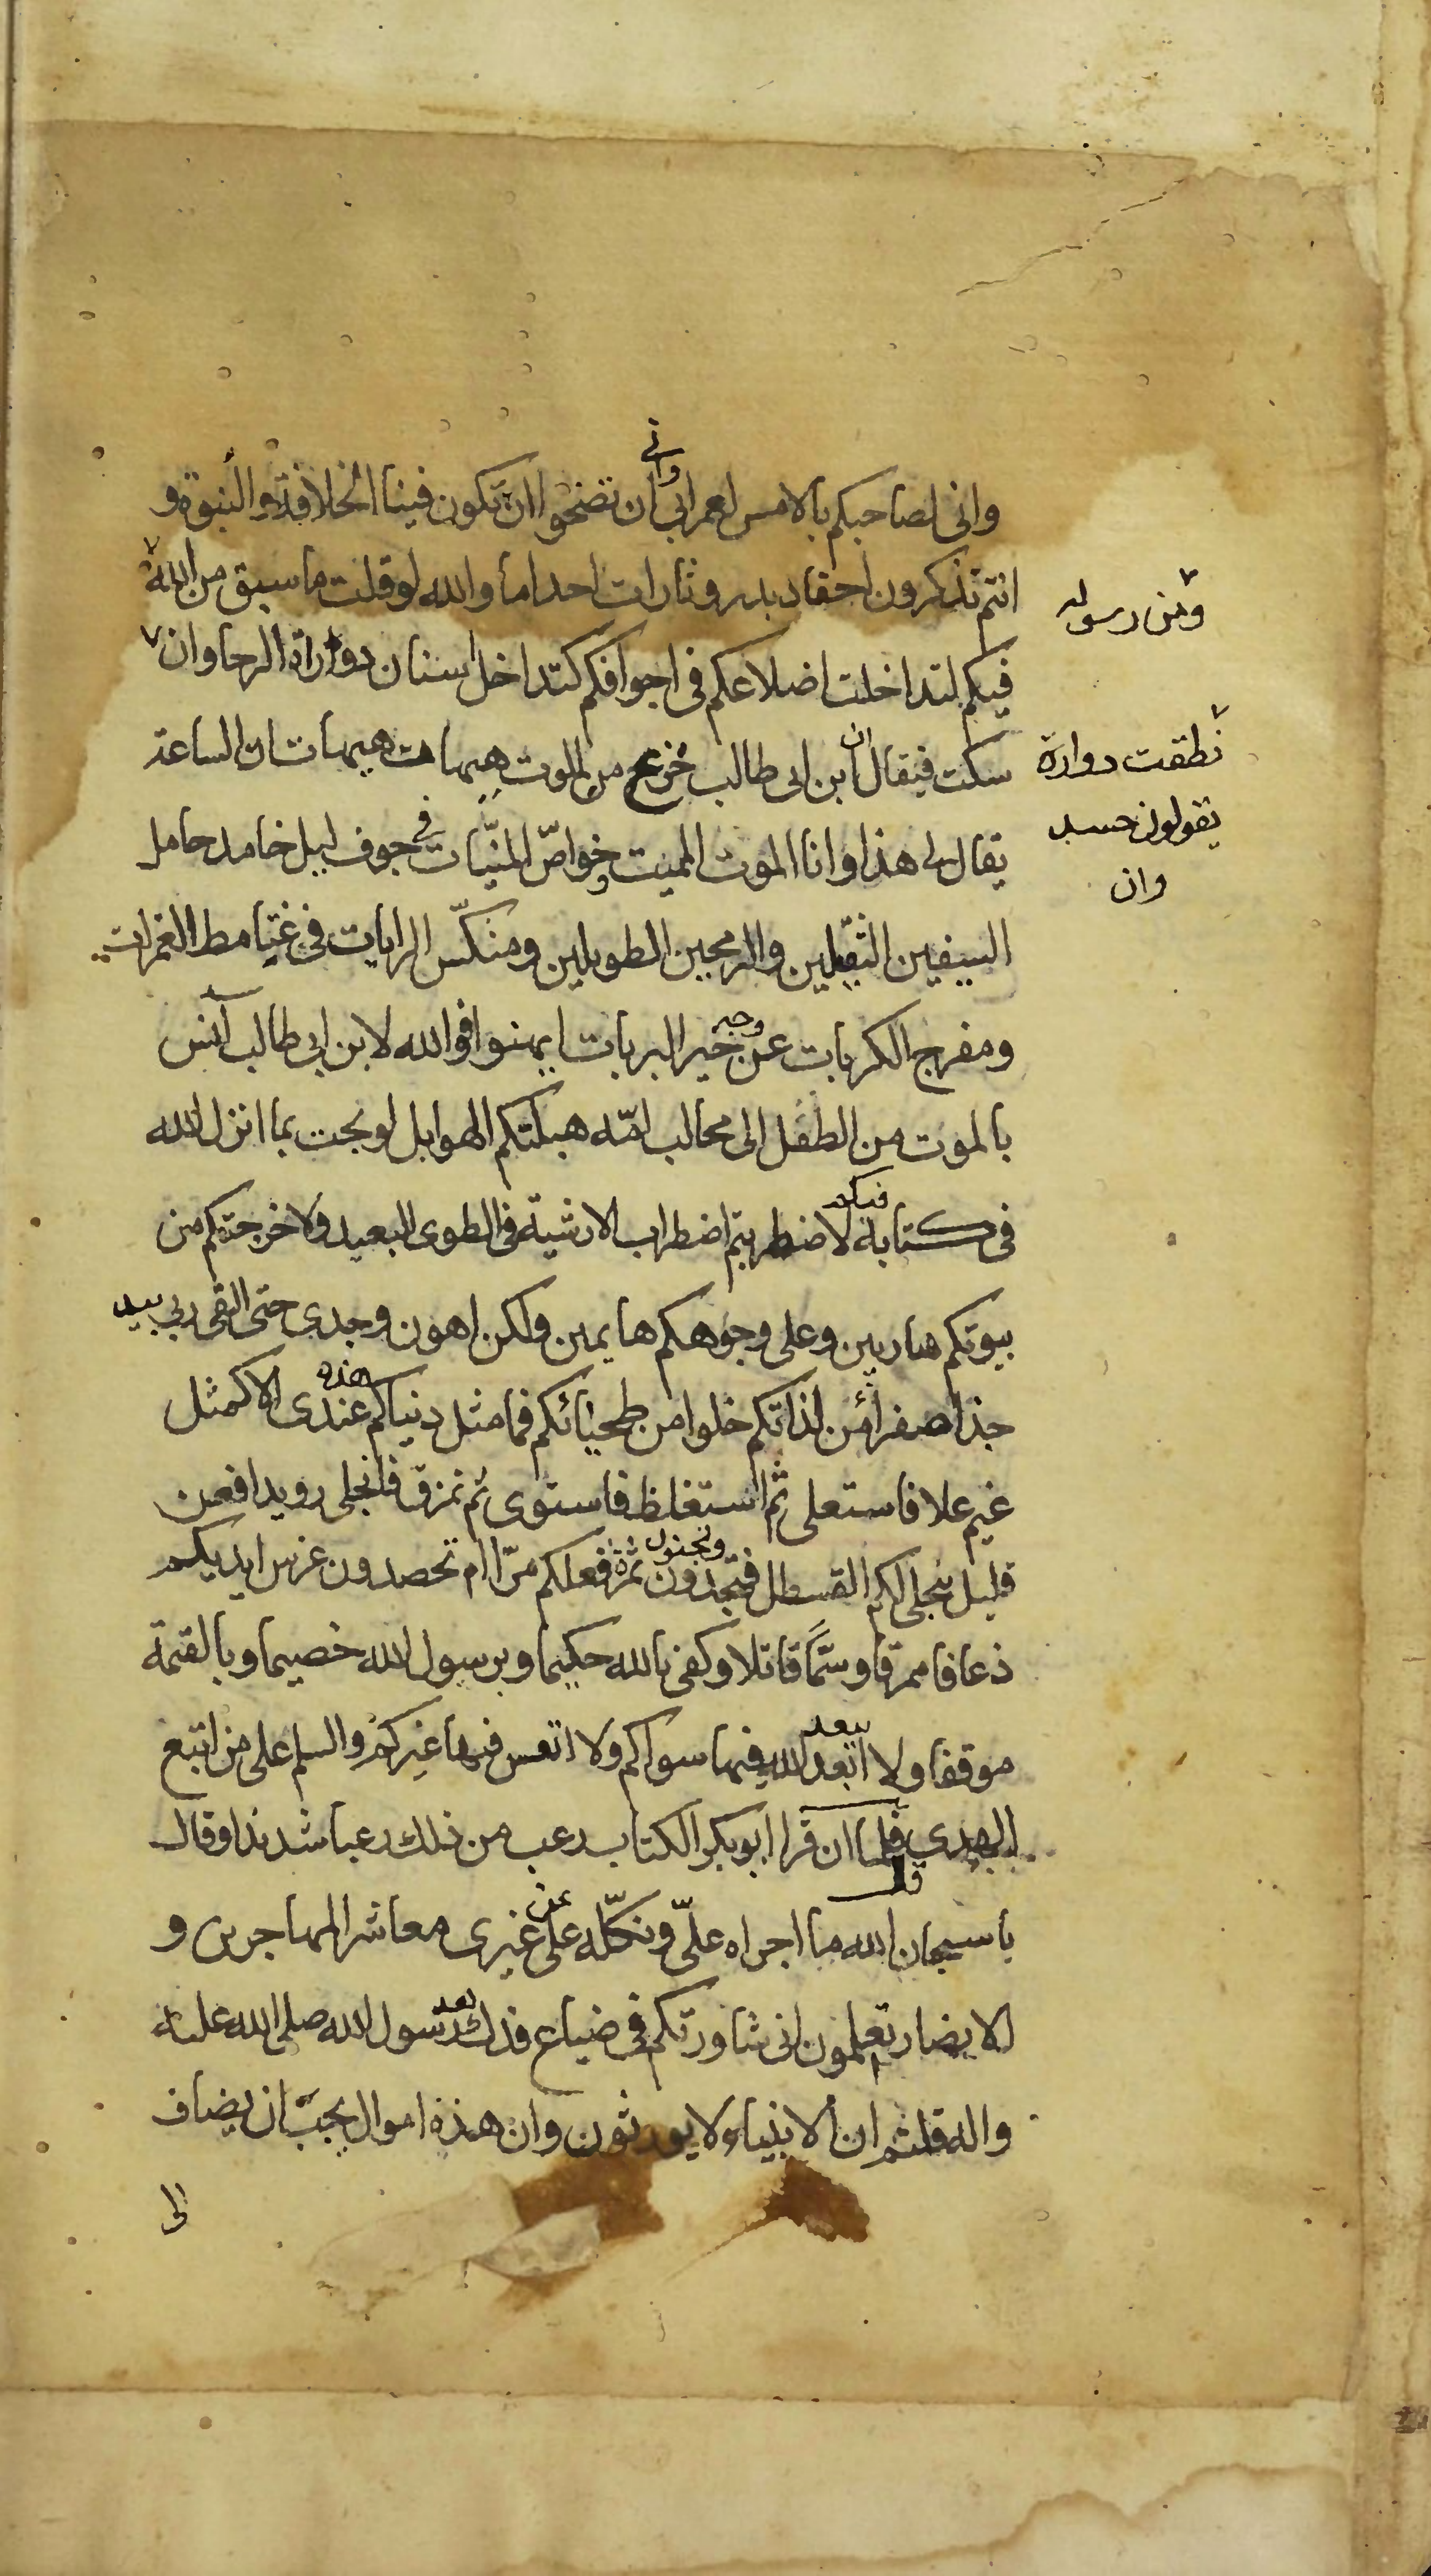 واني
واني لصاحبكم بالامس لعمر ابي ان تضحوا ان تكون فينا الخلافة والنبوة و
انتم تذكرون احقاد بدر وثارات احد اما والله لو قلت ما سبق من الله
ومن رسوله
فيكم لتداخلت اضلاعكم في اجوافكم كتداخل اسنان دوارة الرحا وان
نطقت دوارة
ان
سكت فيقال ابن ابي طالب جزع من الموت هيهات هيهات الساعة
يقولون حسد
وان
في
يقال لي هذا وانا الموت المميت وخواض المنيات جوف ليل خامد حامل
السيفين الثقيلين والرمحين الطويلين ومنكس الرايات في غتامط الغمرات
وجه
ومفرج الكربات عن خير البريات ايهنوا فوالله لابن ابي طالب آنس
بالموت من الطفل الى محالب امه هبلتكم الهوابل لو بحت بما انزل الله
فيكم
في كتابه لاضطربتم اضطراب الارشية في الطوى البعيد ولاخرجتكم من
بيوتكم هاربين وعلى وجوهكم هايمين ولكن اهون وجدى حتى القى ربي بيد
هذه
جذا صفرا من لذاتكم خلوا من طحياتكم فما مثل دنياكم عندى الا كمثل
غيم علا فاستعلى ثم استغلظ فاستوى ثم تمزق فانجلى رويدا فعن
وتجنون
قليل ينجلى لكم القسطل فتجدون ثمرة فعلكم مرا ام تحصدون غرس ايديكم
ذعافا ممرقا وسما قاتلا وكفى بالله حكيما وبرسول الله خصيما وبالقيمة
يبعد
موقفا ولا ابعد الله فيها سواكم ولا اتعس فيها غيركم والسلم على من اتبع
الهدى فلما ان قرا ابو بكر الكتاب رعب من ذلك رعبا شديدا وقال
عن
يا سبحان الله ما اجراه على ونكله على غيرى معاشر المهاجرين و
بعد
الانصار تعلمون انى شاورتكم في ضياع فدك رسول الله صلى الله عليه
واله قلتم ان الانبياء لا يورثون وان هذه اموال يجب ان يضاف
الى